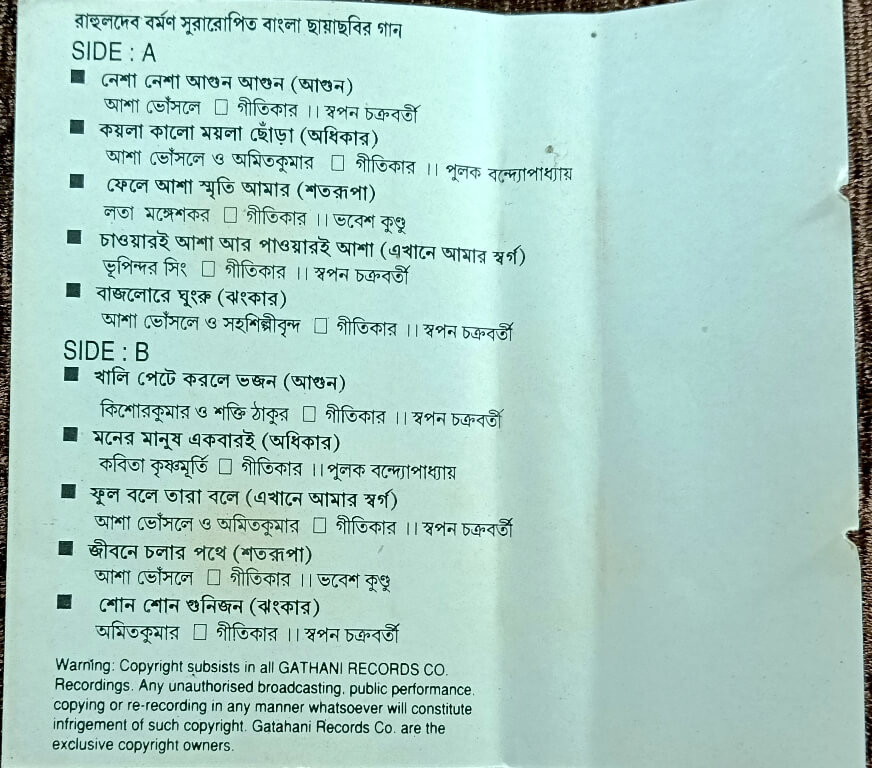 রাহুলদেব বর্মণ সুরারোপিত বাংলা ছায়াছবির গান
SIDE : A
■ নেশা নেশা আগুন আগুন (আগুন)
আশা ভোঁসলে □ গীতিকার ।। স্বপন চক্রবর্তী
■ কয়লা কালো ময়লা ছোঁড়া (অধিকার)
আশা ভোঁসলে ও অমিতকুমার □ গীতিকার ।। পুলক বন্দ্যোপাধ্যায়
■ ফেলে আশা স্মৃতি আমার (শতরূপা)
লতা মঙ্গেশকর □ গীতিকার ।। ভবেশ কুণ্ডু
■ চাওয়ারই আশা আর পাওয়ারই আশা (এখানে আমার স্বর্গ)
ভূপিন্দর সিং □ গীতিকার ।। স্বপন চক্রবর্তী
■ বাজলোরে ঘুংরু (ঝংকার)
আশা ভোঁসলে ও সহশিল্পীবৃন্দ □ গীতিকার ।। স্বপন চক্রবর্তী
SIDE : B
■ খালি পেটে করলে ভজন (আগুন)
কিশোরকুমার ও শক্তি ঠাকুর □ গীতিকার ।। স্বপন চক্রবর্তী
■ মনের মানুষ একবারই (অধিকার)
কবিতা কৃষ্ণমূর্তি □ গীতিকার ।। পুলক বন্দ্যোপাধ্যায়
■ ফুল বলে তারা বলে (এখানে আমার স্বর্গ)
আশা ভোঁসলে ও অমিতকুমার □ গীতিকার ।। স্বপন চক্রবর্তী
■ জীবনে চলার পথে (শতরূপা)
আশা ভোঁসলে □ গীতিকার ।। ভবেশ কুণ্ডু
■ শোন শোন গুনিজন (ঝংকার)
অমিতকুমার □ গীতিকার ।। স্বপন চক্রবর্তী
Warning: Copyright subsists in all GATHANI RECORDS CO.
Recordings. Any unauthorised broadcasting, public performance,
copying or re-recording in any manner whatsoever will constitute
infrigement of such copyright. Gatahani Records Co. are the
exclusive copyright owners.